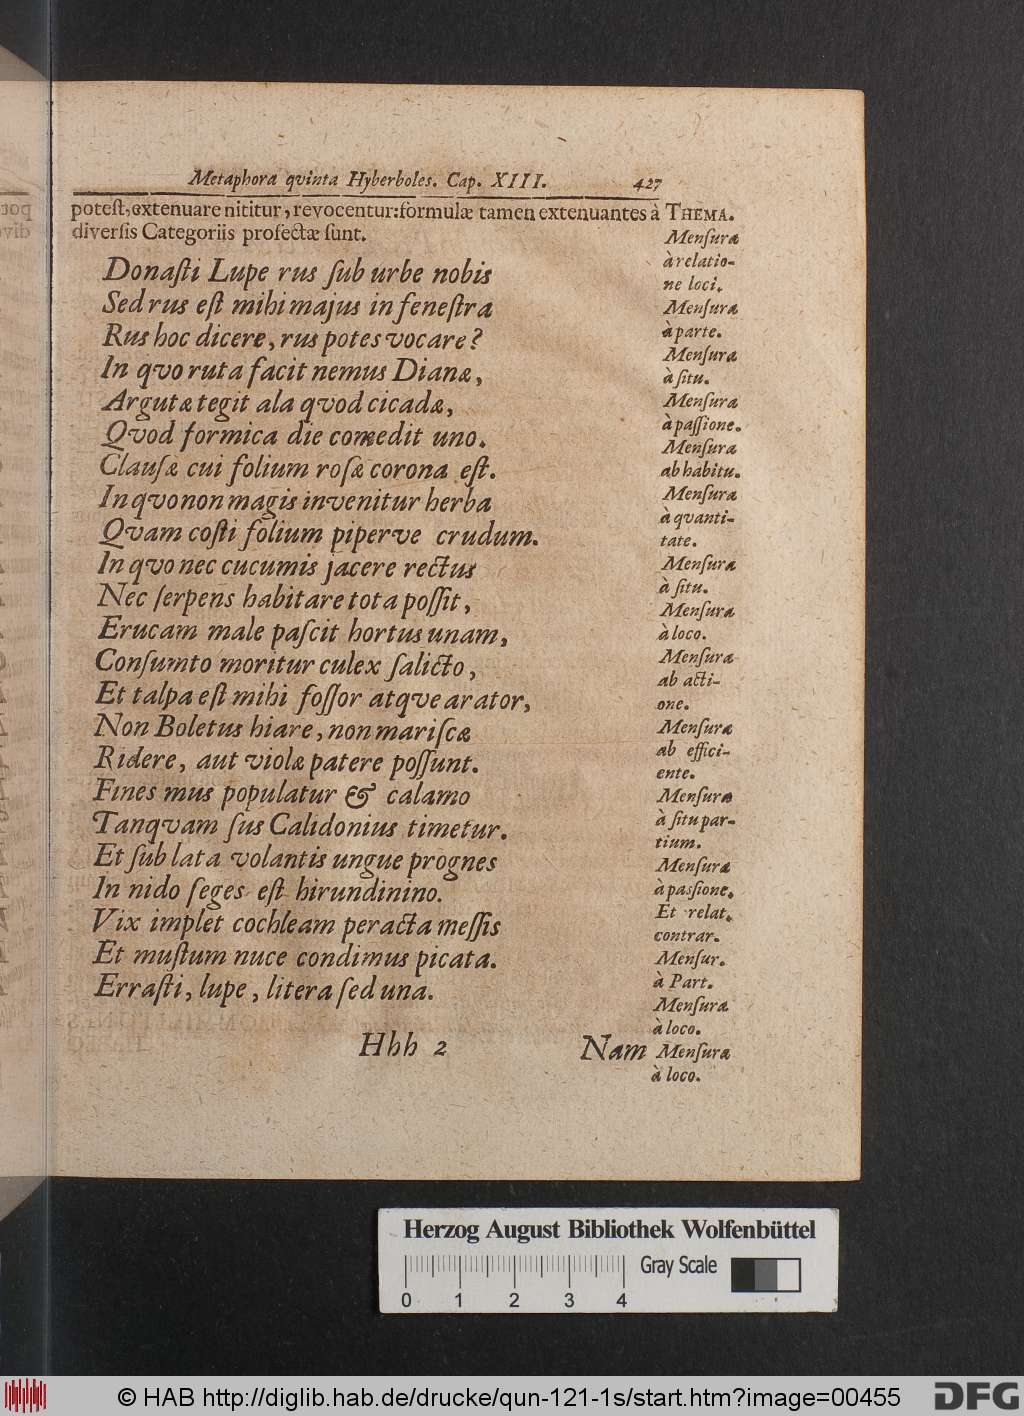 Metaphora qvinta Hyberboles. Cap. XIII. 427
potest, extenuare nititur, revocentur: formulæ tamen extenuantes à
diversis Categoriis profectæ sunt.
Donasti Lupe rus sub urbe nobis
Sed rus est mihi majus in fenestra
Rus hoc dicere, rus potes vocare?
In qvo ruta facit nemus Dianæ,
Argutæ tegit ala qvod cicadæ,
Qvod formica die comedit uno.
Clausæ cui folium rosæ corona est.
In qvo non magis invenitur herba
Qvam costi folium piperve crudum.
In qvo nec cucumis jacere rectus
Nec serpens habitare tota possit,
Erucam male pascit hortus unam,
Consumto moritur culex salicto,
Et talpa est mihi fossor atqve arator,
Non Boletus hiare, non mariscæ
Ridere, aut violæ patere possunt.
Fines mus populatur & calamo
Tanqvam sus Calidonius timetur.
Et sub lata volantis ungue prognes
In nido seges est hirundinino.
Vix implet cochleam peracta messis
Et mustum nuce condimus picata.
Errasti, lupe, litera sed una.
Hhh 2
Nam
THEMA.
Mensuræ
à relatio-
ne loci.
Mensuræ
à parte.
Mensuræ
à situ.
Mensuræ
à passione.
Mensuræ
ab habitu.
Mensuræ
à qvanti-
tate.
Mensuræ
à situ.
Mensuræ
à loco.
Mensuræ
ab acti-
one.
Mensuræ
ab effici-
ente.
Mensuræ
à situ par-
tium.
Mensuræ
à passione.
Et relat.
contrar.
Mensur.
à Part.
Mensuræ
à loco.
Mensuræ
à loco.
Herzog August Bibliothek Wolfenbüttel
Gray Scale
0 1 2 3 4
© HAB http://diglib.hab.de/drucke/qun-121-1s/start.htm?image=00455
DFG